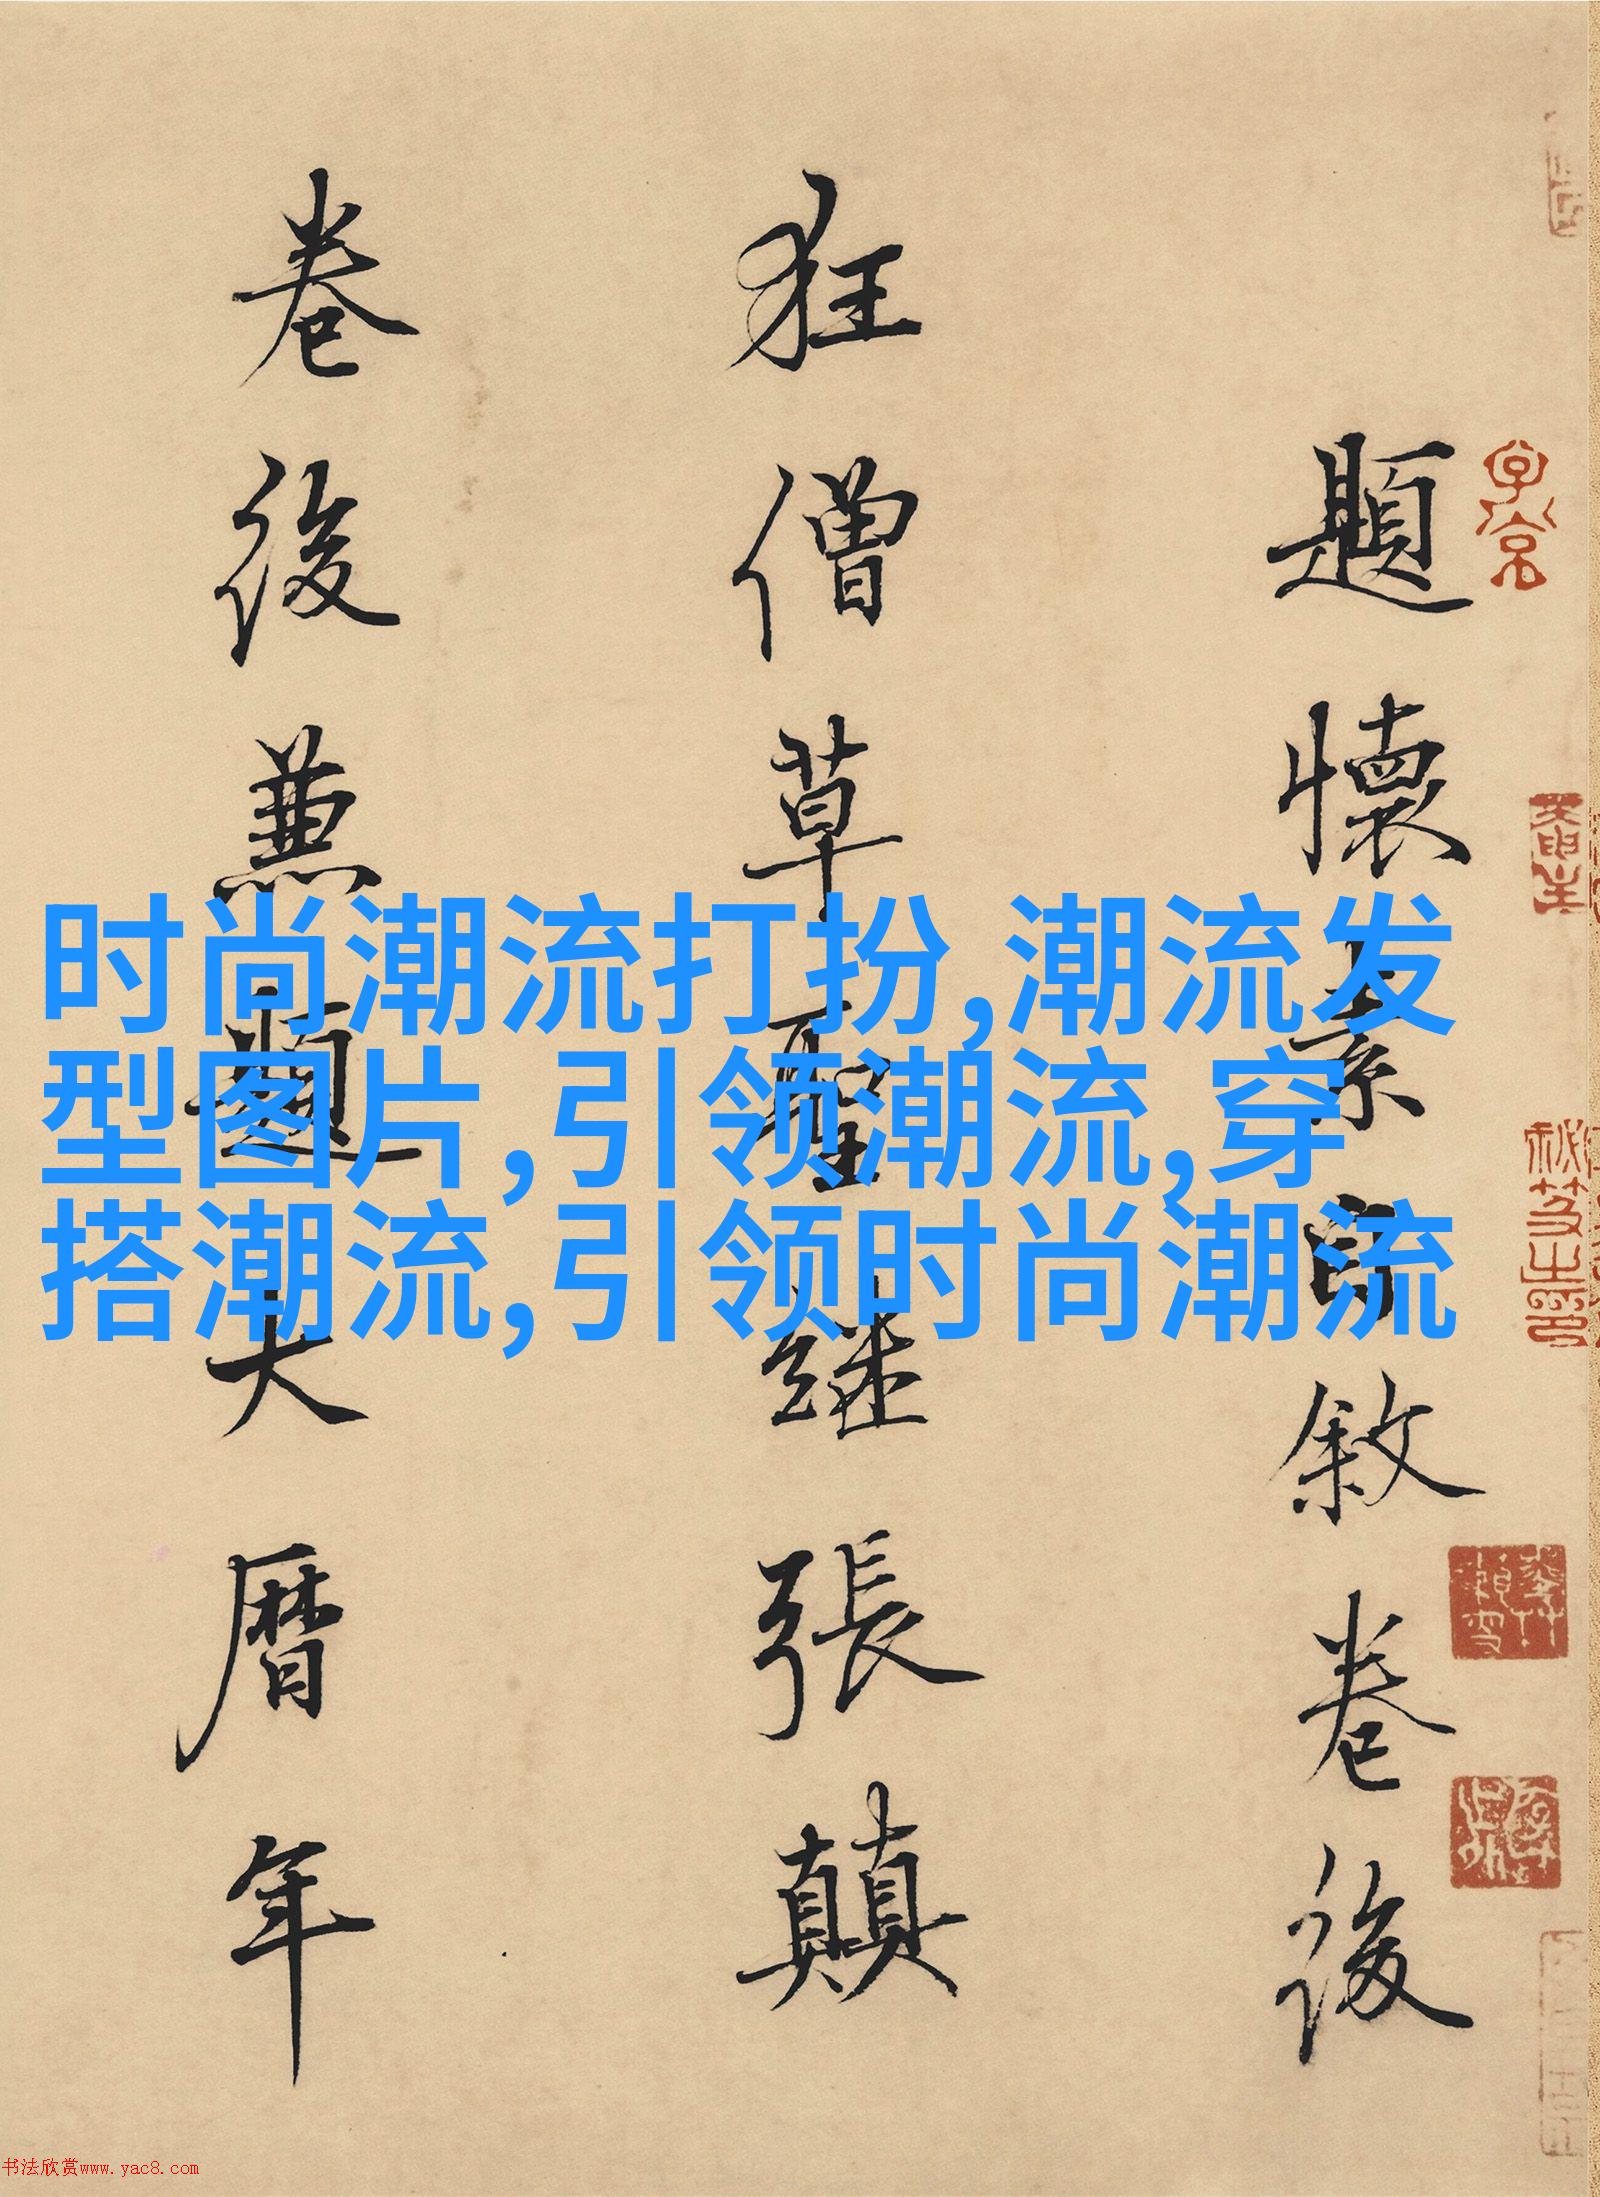 題懷素自敘卷後
狂僧草聖継張顛
卷後兼題大暦年
时尚潮流打扮,潮流发
型图片,引领潮流,穿
搭潮流,引领时尚潮流
书法欣赏www.yac8.com